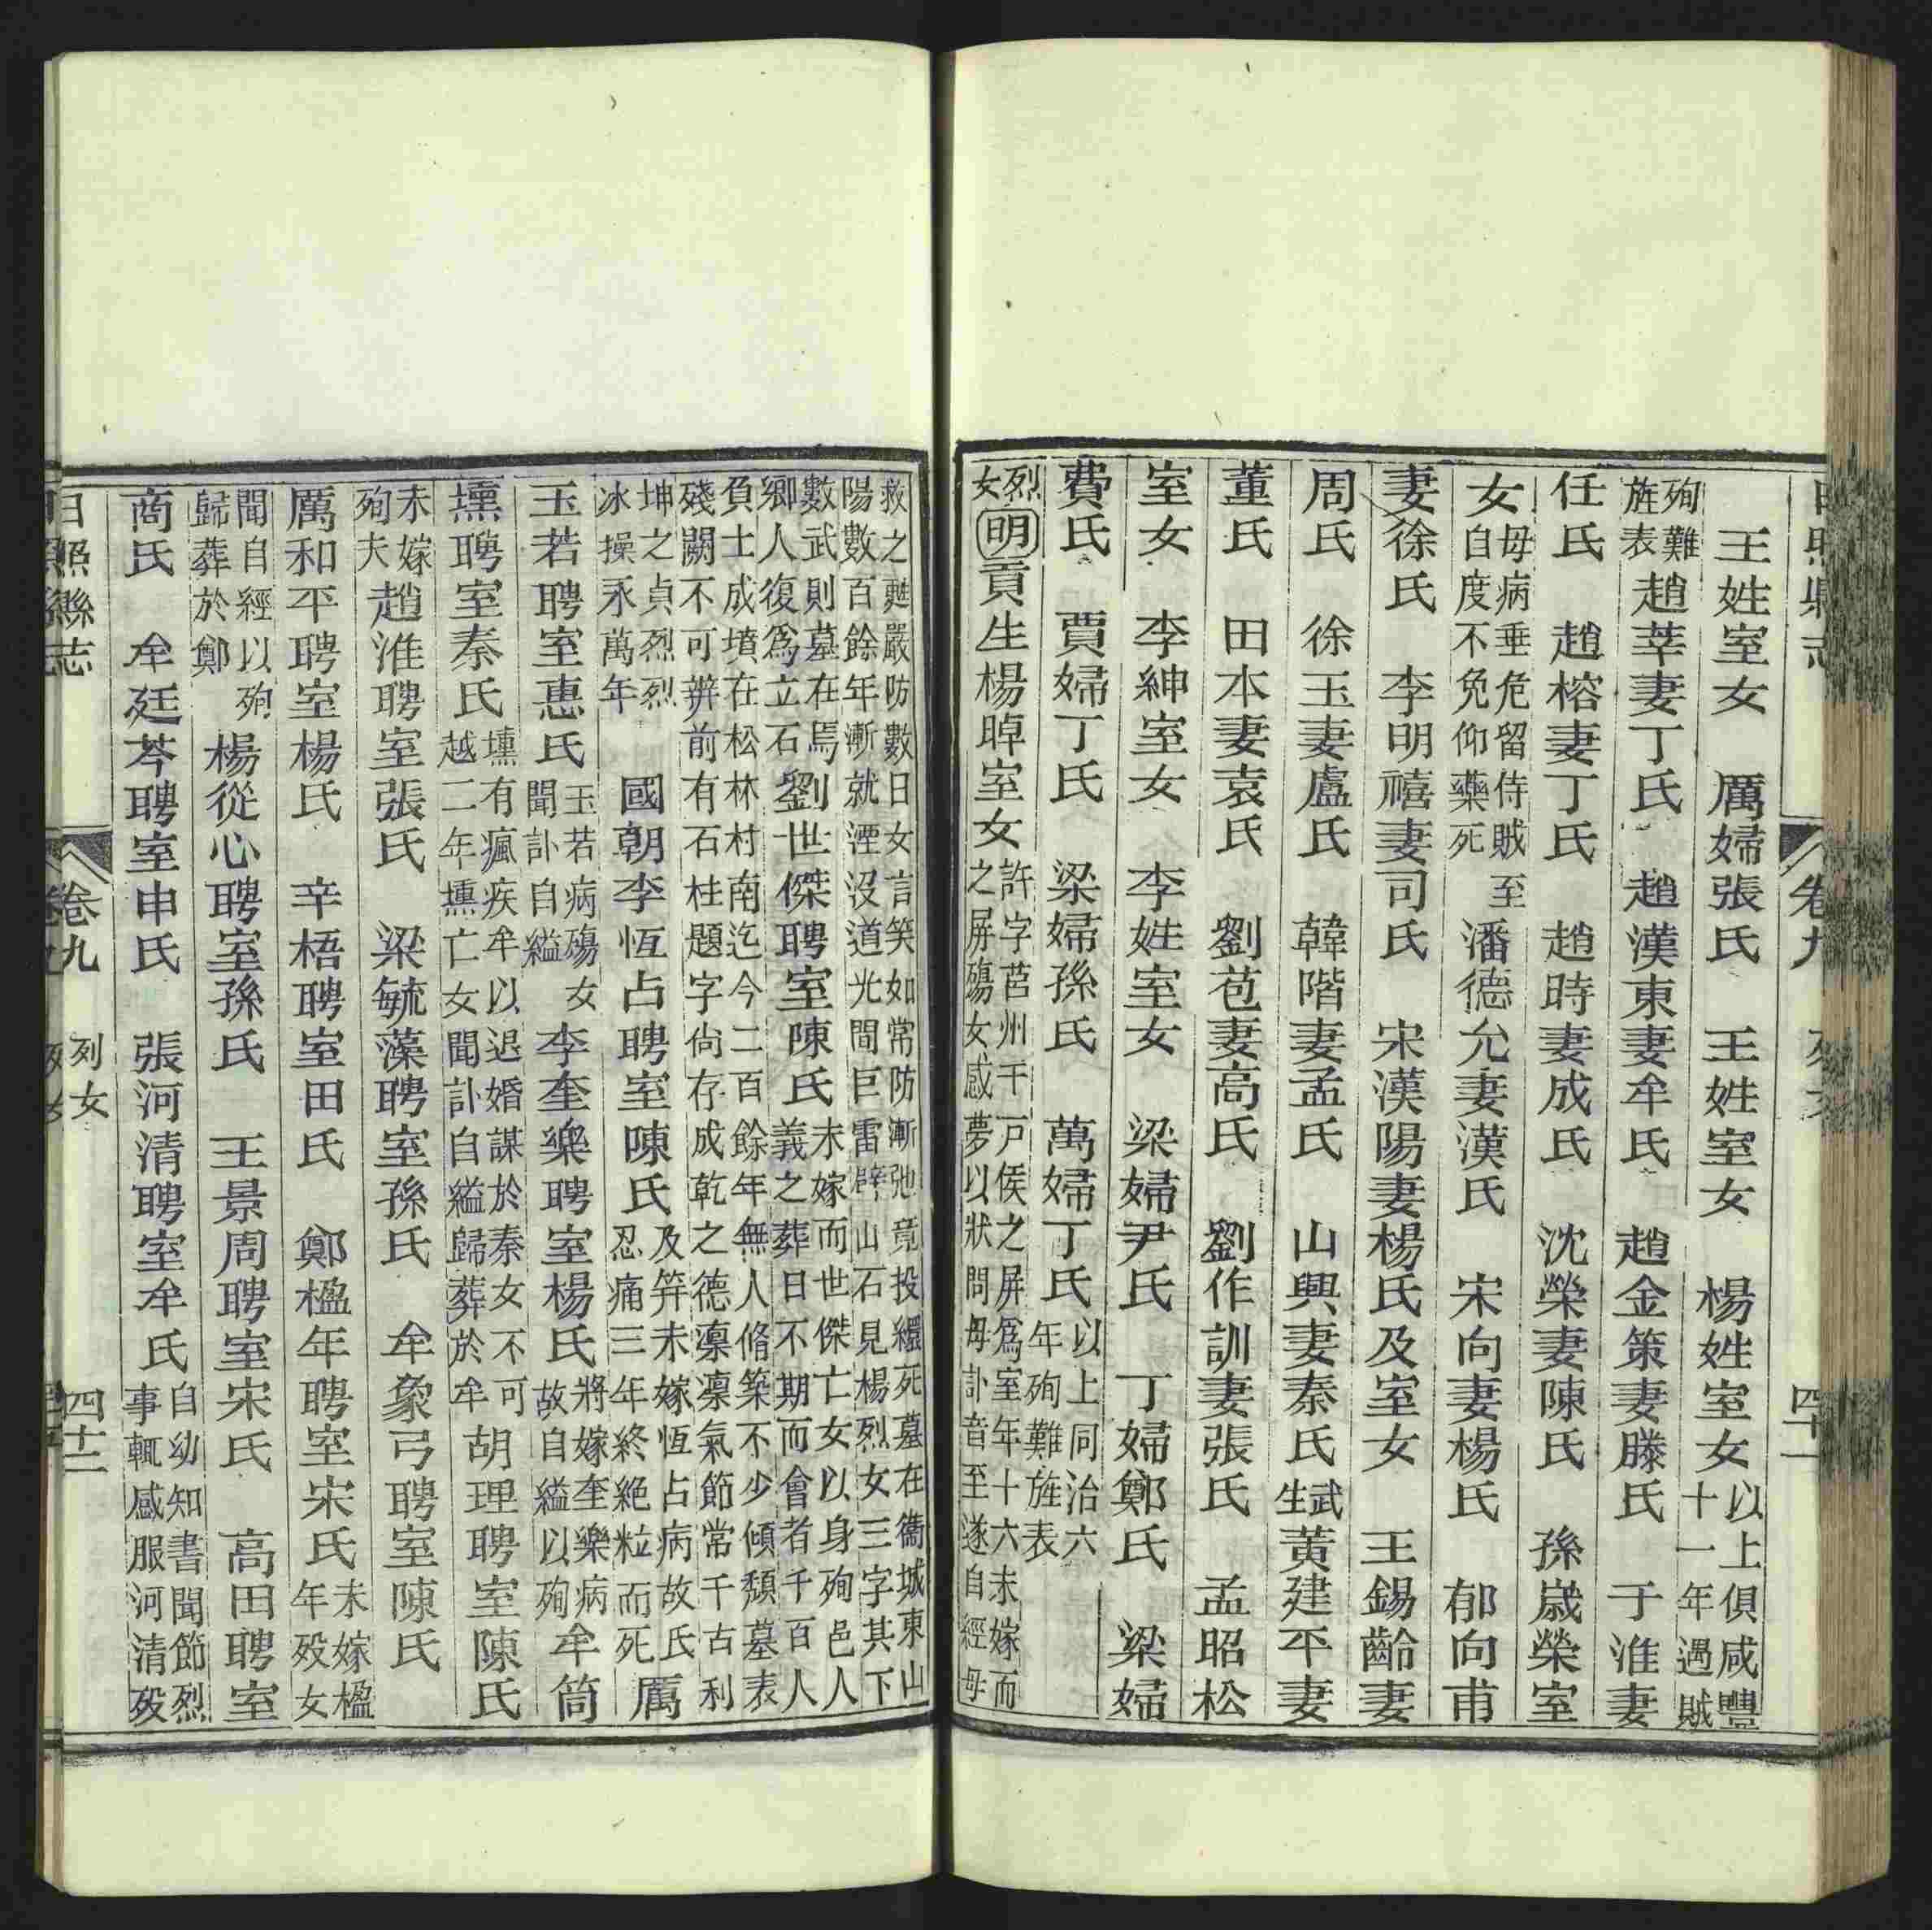 日照縣志 卷九 列女 四十一
王姓室女 厲婦張氏 王姓室女 楊姓室女以上俱咸豐十一年遇賊
殉難旌表趙莘妻丁氏 趙漢東妻牟氏 趙金策妻滕氏 于淮妻
任氏 趙榕妻丁氏 趙時妻成氏 沈榮妻陳氏 孫嵗榮室
女母病垂危留侍賊至自度不免仰藥死 潘德允妻漢氏 宋向妻楊氏 郁向甫
妻徐氏 李明禧妻司氏 宋漢陽妻楊氏及室女 王錫齡妻
周氏 徐玉妻盧氏 韓階妻孟氏 山興妻秦氏 武生黃建平妻
董氏 田本妻袁氏 劉苞妻高氏 劉作訓妻張氏 孟昭松
室女 李紳室女 李姓室女 梁婦尹氏 丁婦鄭氏 梁婦
費氏 賈婦丁氏 梁婦孫氏 萬婦丁氏以上同治六年殉難旌表
烈女明貢生楊晫室女許字莒州千戸侯之屏爲室年十六未嫁而之屏殤女感夢以狀問母訃音至遂自經母
救之甦嚴防數日女言笑如常防漸弛竟投繯死墓在衞城東山陽數百餘年漸就湮沒道光間巨雷辟山石見楊烈女三字其下
數武則墓在焉卿人復爲立石劉世傑聘室陳氏未嫁而世傑亡女以身殉邑人義之葬日不期而會者千百人
負士成墳在松林村南迄今二百餘年無人脩築不少傾頽墓表殘闕不可辨前有石柱題字尙存成乾之德凛凛氣節常千古利
坤之貞烈烈冰操永萬年 國朝李恆占聘室陳氏及笄未嫁恆占病故氏忍痛三年終絕粒而死 厲
玉若聘室惠氏玉若病殤女聞訃自縊 李奎樂聘室楊氏將嫁奎樂病故自縊以殉 牟筒
壎聘室秦氏壎有瘋疾牟以退婚謀於秦女不可越二年壎亡女聞訃自縊歸葬於牟 胡理聘室陳氏
未嫁殉夫趙淮聘室張氏 梁毓藻聘室孫氏 牟象弓聘室陳氏
厲和平聘室楊氏 辛梧聘室田氏 鄭楹年聘室宋氏未嫁楹年歿女
聞自經以殉歸葬於鄭 楊從心聘室孫氏 王景周聘室宋氏 高田聘室
商氏 牟廷芩聘室申氏 張河清聘室牟氏自幼知書聞節烈事輒感服河清歿
日照縣志 卷九 列女 四十二